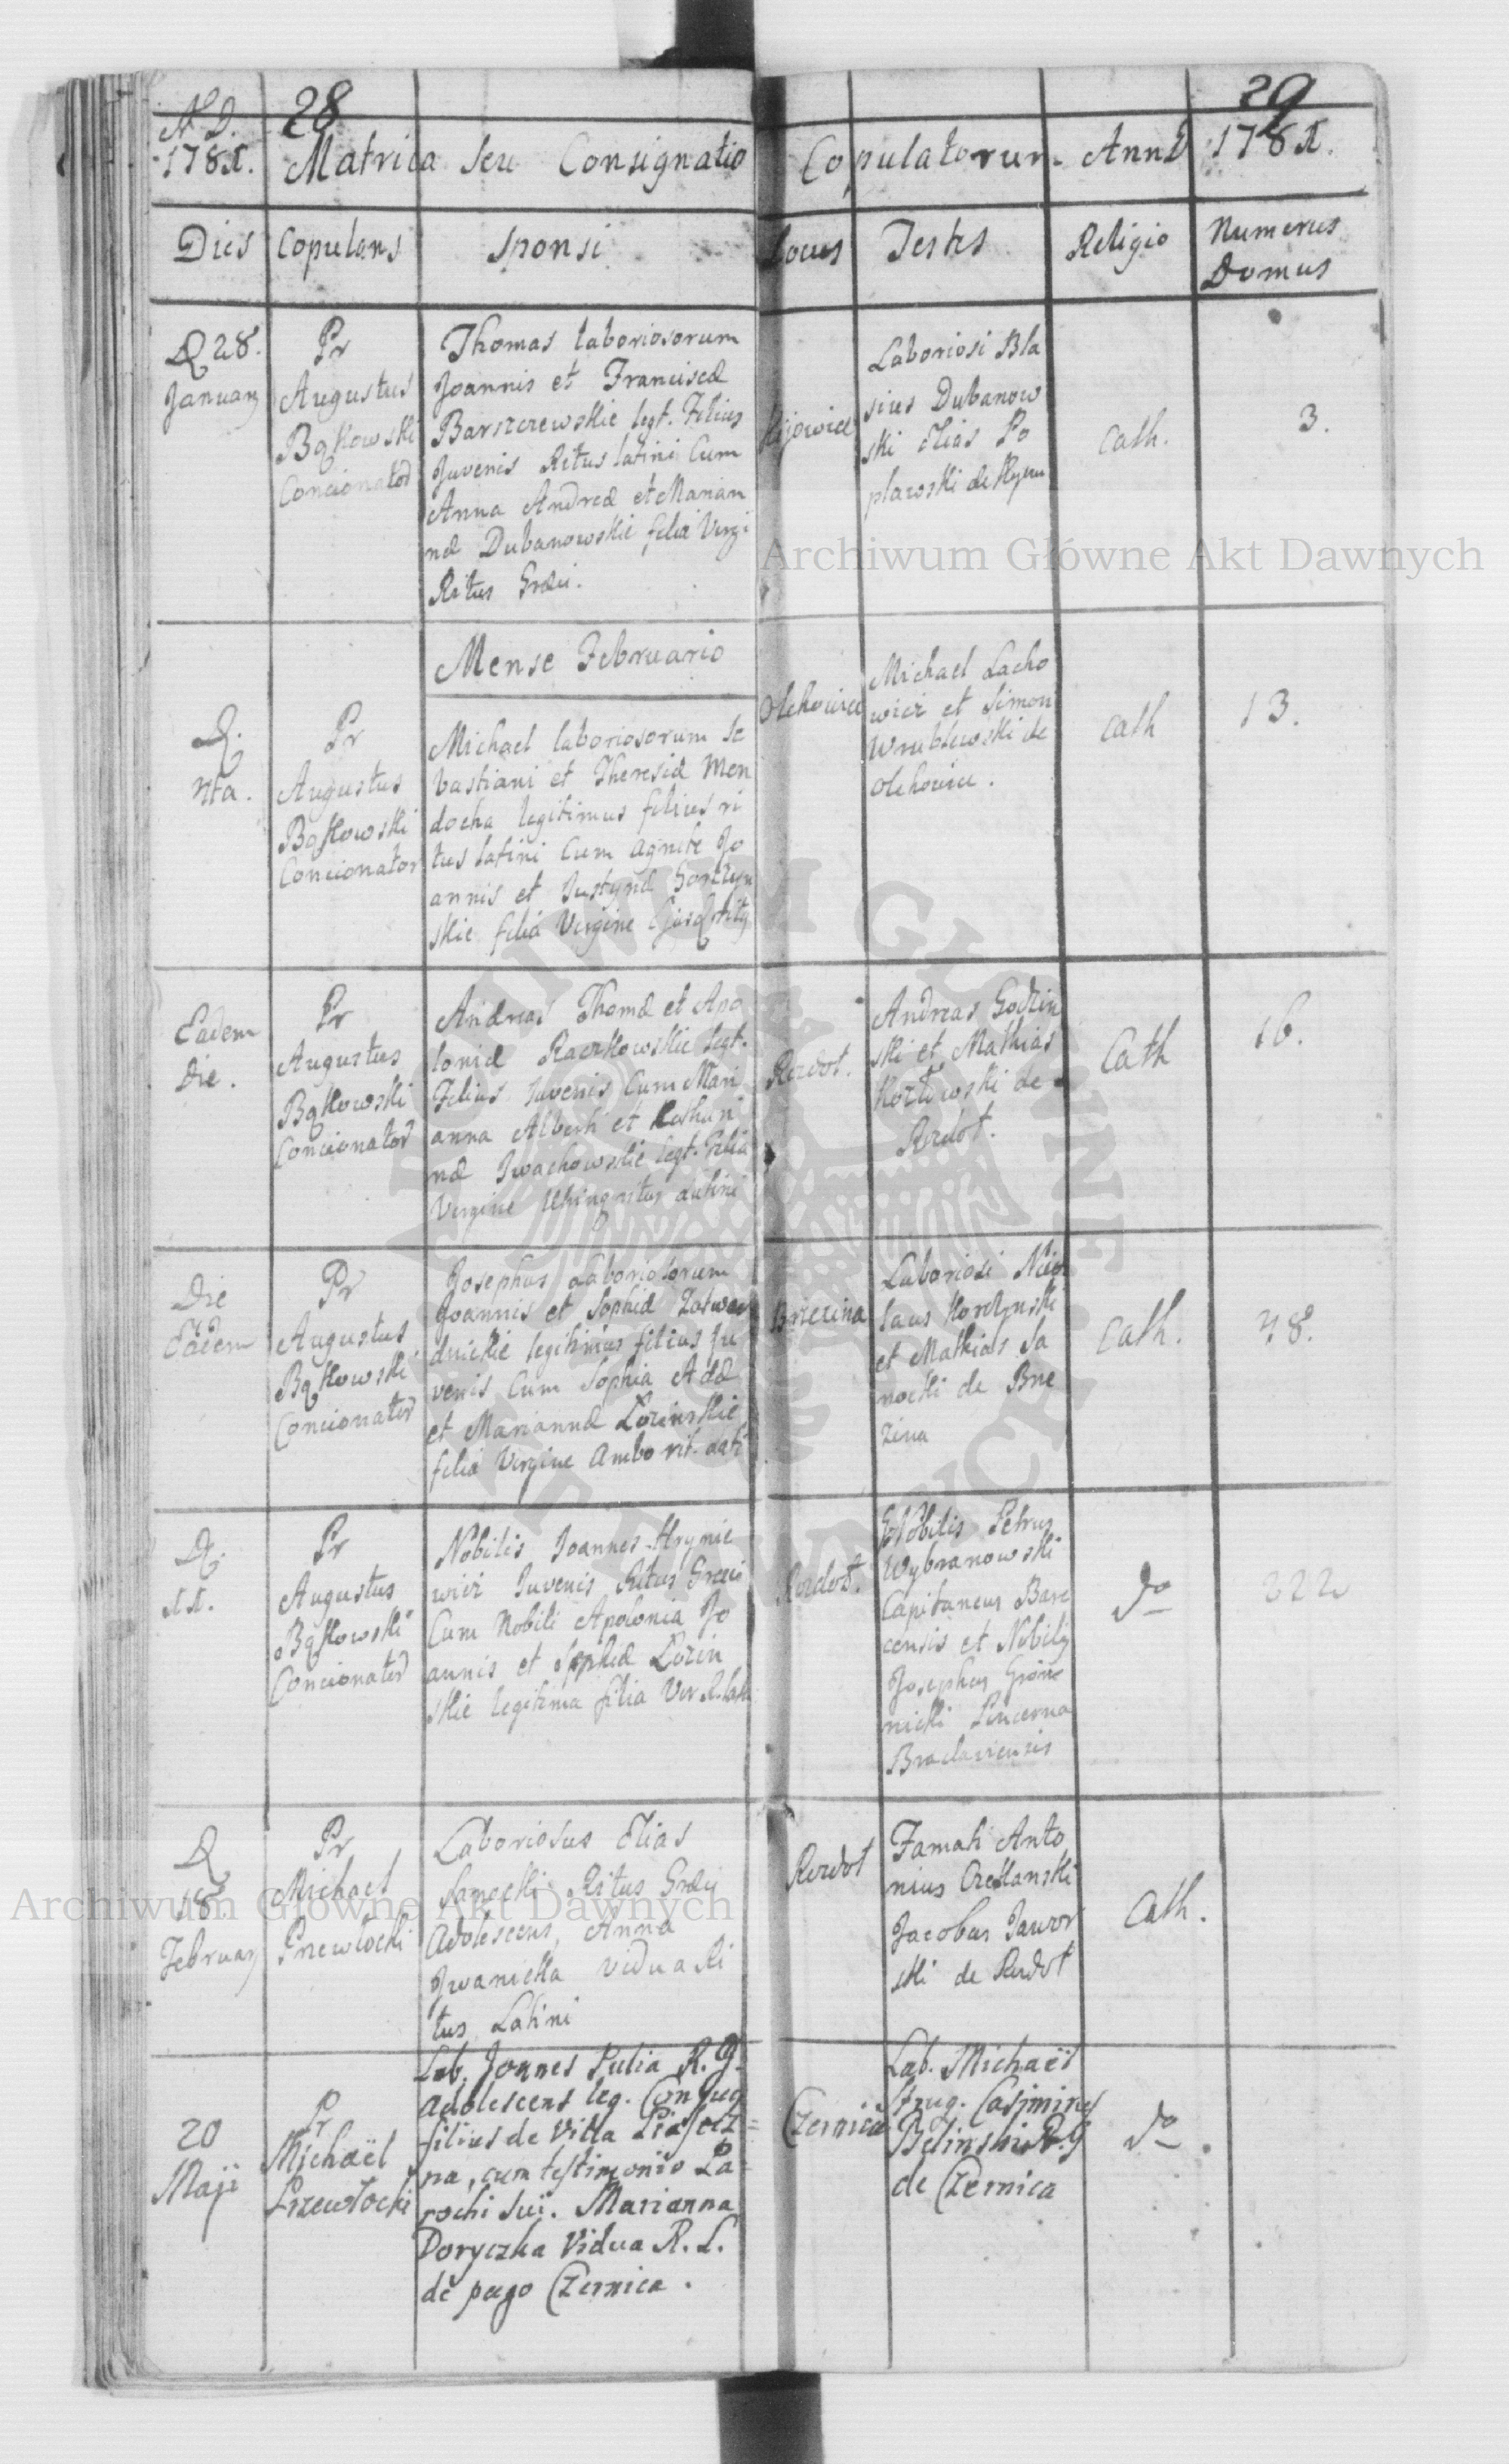 28
29
A D.
1781.
Matrica seu Consignatio
Copulatorum Anni 1781.
Dies
Copulans
Sponsi
Locus
Testes
Religio
Numerus
Domus
D 28.
January
Pr
Augustus
Bąkowski
Concionator
Thomas laboriosorum
Joannis et Franciscæ
Barszczewskie legt. Filius
Juvenis Ritus latini Cum
Anna Andreæ et Marian
næ Dubanowskie filia Virgi
Ritus Græci.
Kijowice
Laboriosi Bla
sius Dubanow
ski Elias Po
plawski de
Cath.
3.
Mense Februario
D.
Pr
Augustus
Bąkowski
Concionator
Michael laboriosorum Se
bastiani et Theresiæ Men
docha legitimus filius ri
tus latini Cum Agnete Jo
annis et Justynæ
skie filia Virgine
Olchowice
Michael Lacho
wicz et Simon
Wrublewski de
Olchowice.
Cath
13.
Eadem
Die.
Pr
Augustus
Bąkowski
Concionator
Andreas Thomæ et Apo
loniæ Raczkowskie legt.
Filius Juvenis Cum Mari
anna Alberti et
næ Iwachowskie legt. Filia
Virgine Utrinq ritus Latini
Rozdoł.
Andreas Godzin
ski et Mathias
Kozłowski de
Rozdoł.
Cath
16.
Die
Eadem
Pr
Augustus
Bąkowski
Concionator
Josephus Laboriosorum
Joannis et Sophiæ
legitimus filius Ju
venis Cum Sophia Adæ
et Mariannæ Lozinskie
filia Virgine Ambo rit. Lati
Brzezina
Laboriosi Nico
laus
et Mathias Sa
nocki de Brze
zina
Cath.
48.
D.
11.
Pr
Augustus
Bąkowski
Concionator
Nobilis Joannes Hrynie
wicz Juvenis Ritus Græci
Cum Nobili Apolonia Jo
annis et Sophiæ Lozin
skie legitima filia Vir R. lati
Rozdoł.
Nobilis Petrus
Wybranowski
Capitaneus
censis et Nobilis
Josephus
nicki Pincerna
Braclaviensis
do
222
D
18
February
Pr
Michael
Przewłocki
Laboriosus Elias
Sanocki Ritus Græci
Adolescens, Anna
Iwanicka Vidua Ri
tus Latini
Rozdoł
Famati Anto
nius
Jacobus Jawor
ski de Rozdoł
Cath.
20
Maji
Pr
Michaël
Przewłocki
Lab. Joannes Pulia R. G.
Adolescens leg. Conjug
filius de Villa Piasecz=
na, cum testimonio Pa=
rochi sui. Marianna
Doryczka Vidua R. L.
de pago Czernica.
Czernica
Lab. Michaël
Strug. Casimirus
Belinski R. G
de Czernica
do.
Archiwum Główne Akt Dawnych
Archiwum Główne Akt Dawnych
ARCHIWUM GŁÓWNE AKT DAWNYCH